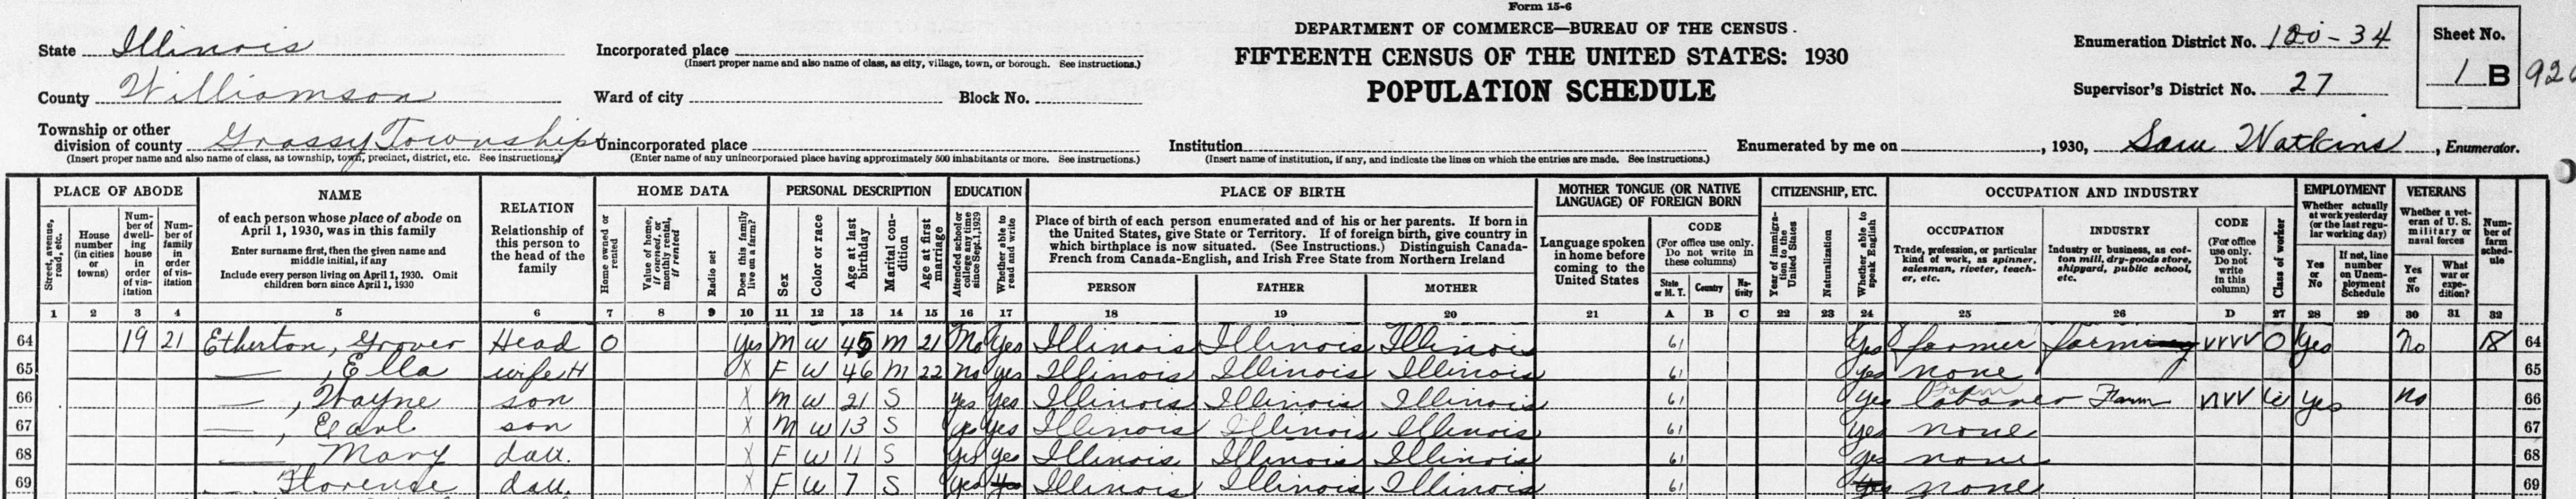 Form 15-6
DEPARTMENT OF COMMERCE—BUREAU OF THE CENSUS
FIFTEENTH CENSUS OF THE UNITED STATES: 1930
POPULATION SCHEDULE
State Illinois
County Williamson
Township or other division of county Grassy Township
(Insert proper name and also name of class, as township, town, precinct, district, etc. See instructions.)
Incorporated place
(Insert proper name and also name of class, as city, village, town, or borough. See instructions.)
Ward of city Block No.
Unincorporated place
(Enter name of any unincorporated place having approximately 500 inhabitants or more. See instructions.)
Institution
(Insert name of institution, if any, and indicate the lines on which the entries are made. See instructions.)
Enumeration District No. 100-34
Supervisor's District No. 27
Sheet No.
1 B
Enumerated by me on , 1930, Sam Watkins , Enumerator.
PLACE OF ABODE
Street, avenue, road, etc.
House number (in cities or towns)
Number of dwelling house in order of visitation
Number of family in order of visitation
NAME
of each person whose place of abode on April 1, 1930, was in this family
Enter surname first, then the given name and middle initial, if any
Include every person living on April 1, 1930. Omit children born since April 1, 1930
RELATION
Relationship of this person to the head of the family
HOME DATA
Home owned or rented
Value of home, if owned, or monthly rental, if rented
Radio set
Does this family live on a farm?
PERSONAL DESCRIPTION
Sex
Color or race
Age at last birthday
Marital condition
Age at first marriage
EDUCATION
Attended school or college any time since Sept. 1, 1929
Whether able to read and write
PLACE OF BIRTH
Place of birth of each person enumerated and of his or her parents. If born in the United States, give State or Territory. If of foreign birth, give country in which birthplace is now situated. (See Instructions.) Distinguish Canada-French from Canada-English, and Irish Free State from Northern Ireland
PERSON FATHER MOTHER
MOTHER TONGUE (OR NATIVE LANGUAGE) OF FOREIGN BORN
Language spoken in home before coming to the United States
CODE
(For office use only. Do not write in these columns)
State or M. T. Country Nativity
CITIZENSHIP, ETC.
Year of immigration to the United States
Naturalization
Whether able to speak English
OCCUPATION AND INDUSTRY
OCCUPATION
Trade, profession, or particular kind of work, as spinner, salesman, riveter, teacher, etc.
INDUSTRY
Industry or business, as cotton mill, dry-goods store, shipyard, public school, etc.
CODE
(For office use only. Do not write in this column)
Class of worker
EMPLOYMENT
Whether actually at work yesterday (or the last regular working day)
Yes or No
If not, line number on Unemployment Schedule
VETERANS
Whether a veteran of U. S. military or naval forces
Yes or No
What war or expedition?
Number of farm schedule
1 2 3 4 5 6 7 8 9 10 11 12 13 14 15 16 17 18 19 20 21 A B C 22 23 24 25 26 D 27 28 29 30 31 32
64 19 21 Etherton, Grover Head O yes M W 45 M 21 No Yes Illinois Illinois Illinois 61 Yes farmer farming VVVV O Yes No 18 64
65 — , Ella wife H X F W 46 M 22 no yes Illinois Illinois Illinois 61 yes none 65
66 — , Wayne son X M W 21 S yes yes Illinois Illinois Illinois 61 yes Laborer Farm VVVV W yes no 66
67 — , Earl son X M W 13 S yes yes Illinois Illinois Illinois 61 yes none 67
68 — Mary dau. X F W 11 S yes yes Illinois Illinois Illinois 61 yes none 68
69 — Florence dau. X F W 7 S yes Illinois Illinois Illinois 61 none 69